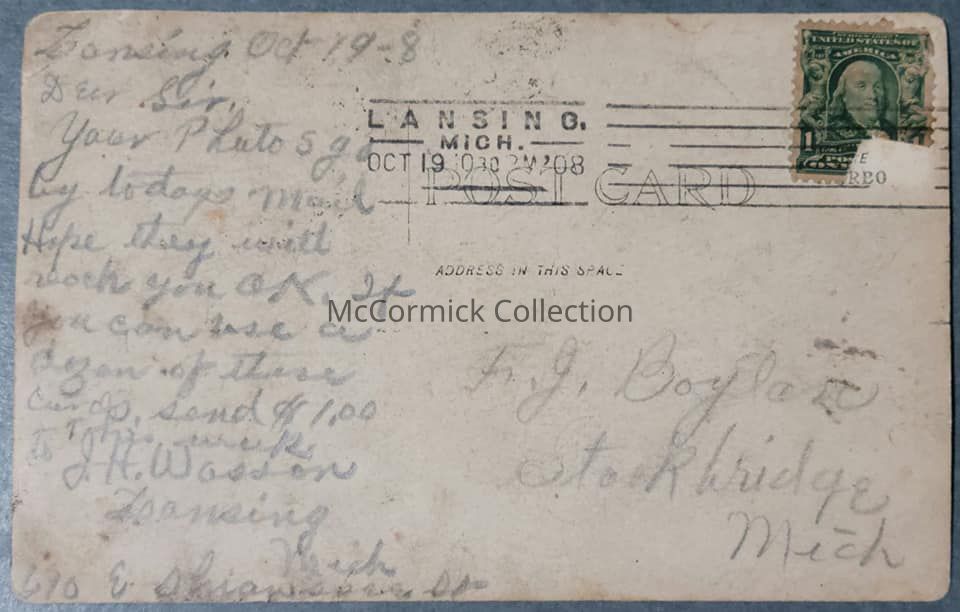 Lansing Oct 19-8
Dear Sir,
Your Photos go
by todays mail
Hope they will
reach you OK. If
you can use a
dozen of these
cards, send $1.00
This week
to J.H. Wasson
Lansing
Mich
610 E Shiawassee St
LANSING,
MICH.
OCT 19 1030 PM '08
POST CARD
ADDRESS IN THIS SPACE
UNITED STATES OF
AMERICA
1
McCormick Collection
F. J. Boylan
Stockbridge
Mich